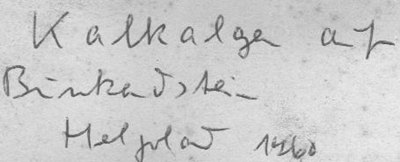 Kalkalgen auf
Buntsandstein
Helgoland 1960